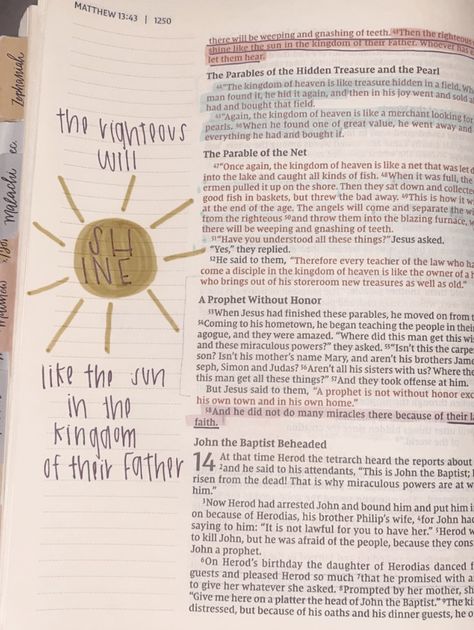 MATTHEW 13:43 | 1250
Zephaniah
Malachi
the righteous
will
SH
INE
like the sun
in the
kingdom
of their Father
there will be weeping and gnashing of teeth. 43Then the righteous
shine like the sun in the kingdom of their Father. Whoever has e
let them hear.
The Parables of the Hidden Treasure and the Pearl
44"The kingdom of heaven is like treasure hidden in a field. Wh
man found it, he hid it again, and then in his joy went and sold
had and bought that field.
45"Again, the kingdom of heaven is like a merchant looking for
pearls. 46When he found one of great value, he went away and
everything he had and bought it.
The Parable of the Net
47"Once again, the kingdom of heaven is like a net that was let d
into the lake and caught all kinds of fish. 48When it was full, the
ermen pulled it up on the shore. Then they sat down and collecte
good fish in baskets, but threw the bad away. 49This is how it w
at the end of the age. The angels will come and separate the w
from the righteous 50and throw them into the blazing furnace, w
there will be weeping and gnashing of teeth.
51"Have you understood all these things?" Jesus asked.
"Yes," they replied.
52He said to them, "Therefore every teacher of the law who ha
come a disciple in the kingdom of heaven is like the owner of a h
who brings out of his storeroom new treasures as well as old."
A Prophet Without Honor
53When Jesus had finished these parables, he moved on from t
54Coming to his hometown, he began teaching the people in thei
agogue, and they were amazed. "Where did this man get this wi
and these miraculous powers?" they asked. 55"Isn't this the carpe
son? Isn't his mother's name Mary, and aren't his brothers Jame
seph, Simon and Judas? 56Aren't all his sisters with us? Where th
this man get all these things?" 57And they took offense at him.
But Jesus said to them, "A prophet is not without honor exc
his own town and in his own home."
58And he did not do many miracles there because of their la
faith.
John the Baptist Beheaded
14 At that time Herod the tetrarch heard the reports about
2and he said to his attendants, "This is John the Baptist;
risen from the dead! That is why miraculous powers are at w
him."
3Now Herod had arrested John and bound him and put him i
on because of Herodias, his brother Philip's wife, 4for John had
saying to him: "It is not lawful for you to have her." 5Herod w
to kill John, but he was afraid of the people, because they cons
John a prophet.
6On Herod's birthday the daughter of Herodias danced f
guests and pleased Herod so much 7that he promised with a
to give her whatever she asked. 8Prompted by her mother, sh
"Give me here on a platter the head of John the Baptist." 9The ki
distressed, but because of his oaths and his dinner guests, he o